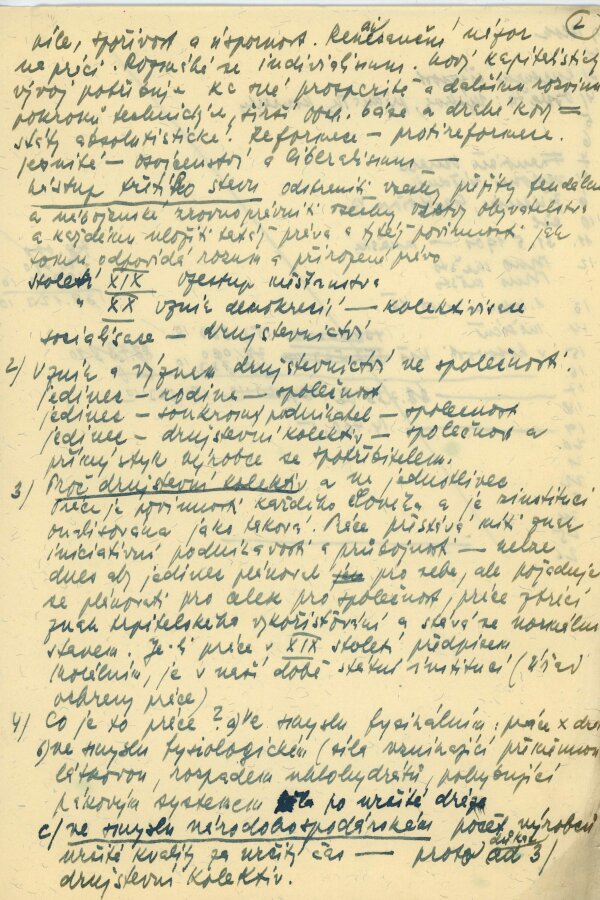 2
píle, spořivost a úspornost. Renaisanční názor
na práci. Rozmáhá se individialismus. Nový kapitalistický
vývoj potřebuje ke své prosperitě a dalšímu rozvoji
pokroku technických, širší báze a drahé kdy =
státy absolutistické. Reformace – protireformace.
jesuité – osvícenství a liberalismus —
nástup třetího stavu odstraniti všechny přežitky feudální
a náboženské zrovnoprávniti všechny vrstvy obyvatelstva
a každému uložiti táž práva a tytéž povinnosti jak
tomu odpovídá rozum a přirozené právo
století XIX vzestup měšťanstva
" XX vznik demokracií — kolektivisace
socialisace — družstevnictví
2/ Vznik a význam družstevnictví ve společnosti.
jedinec – rodina – společnost
jedinec – soukromý podnikatel – společnost
jedinec – družstevní kolektiv – společnost a
přímý styk výrobce se spotřebitelem.
3/ Proč družstevní kolektiv a ne jednotlivec
Práce je povinností každého člověka a je zinstituci
onalisována jako taková. Práce přestává míti znak
iniciativní podnikavosti a průbojnosti — nelze
dnes aby jedinec plánoval jen pro sebe, ale požaduje
se plánovati pro celek pro společnost, práce ztrácí
znak trpitelského vykořisťování a stává se normálním
stavem. Je-li práce v XIX století předpisem
morálním, je v naší době státní institucí (Úřad
ochrany práce)
4/ Co je to práce? a) ve smyslu fysikálním: práce x dráha
b) ve smyslu fysiologickém (síla vznikající přeměnou
látkovou, rozpadem uhlohydrátů, pohybující
pákovým systémem po určité dráze
c/ ve smyslu národohospodářském počet výrobků
určité kvality za určitý čas — proto důkaz ad 3/
družstevní kolektiv.